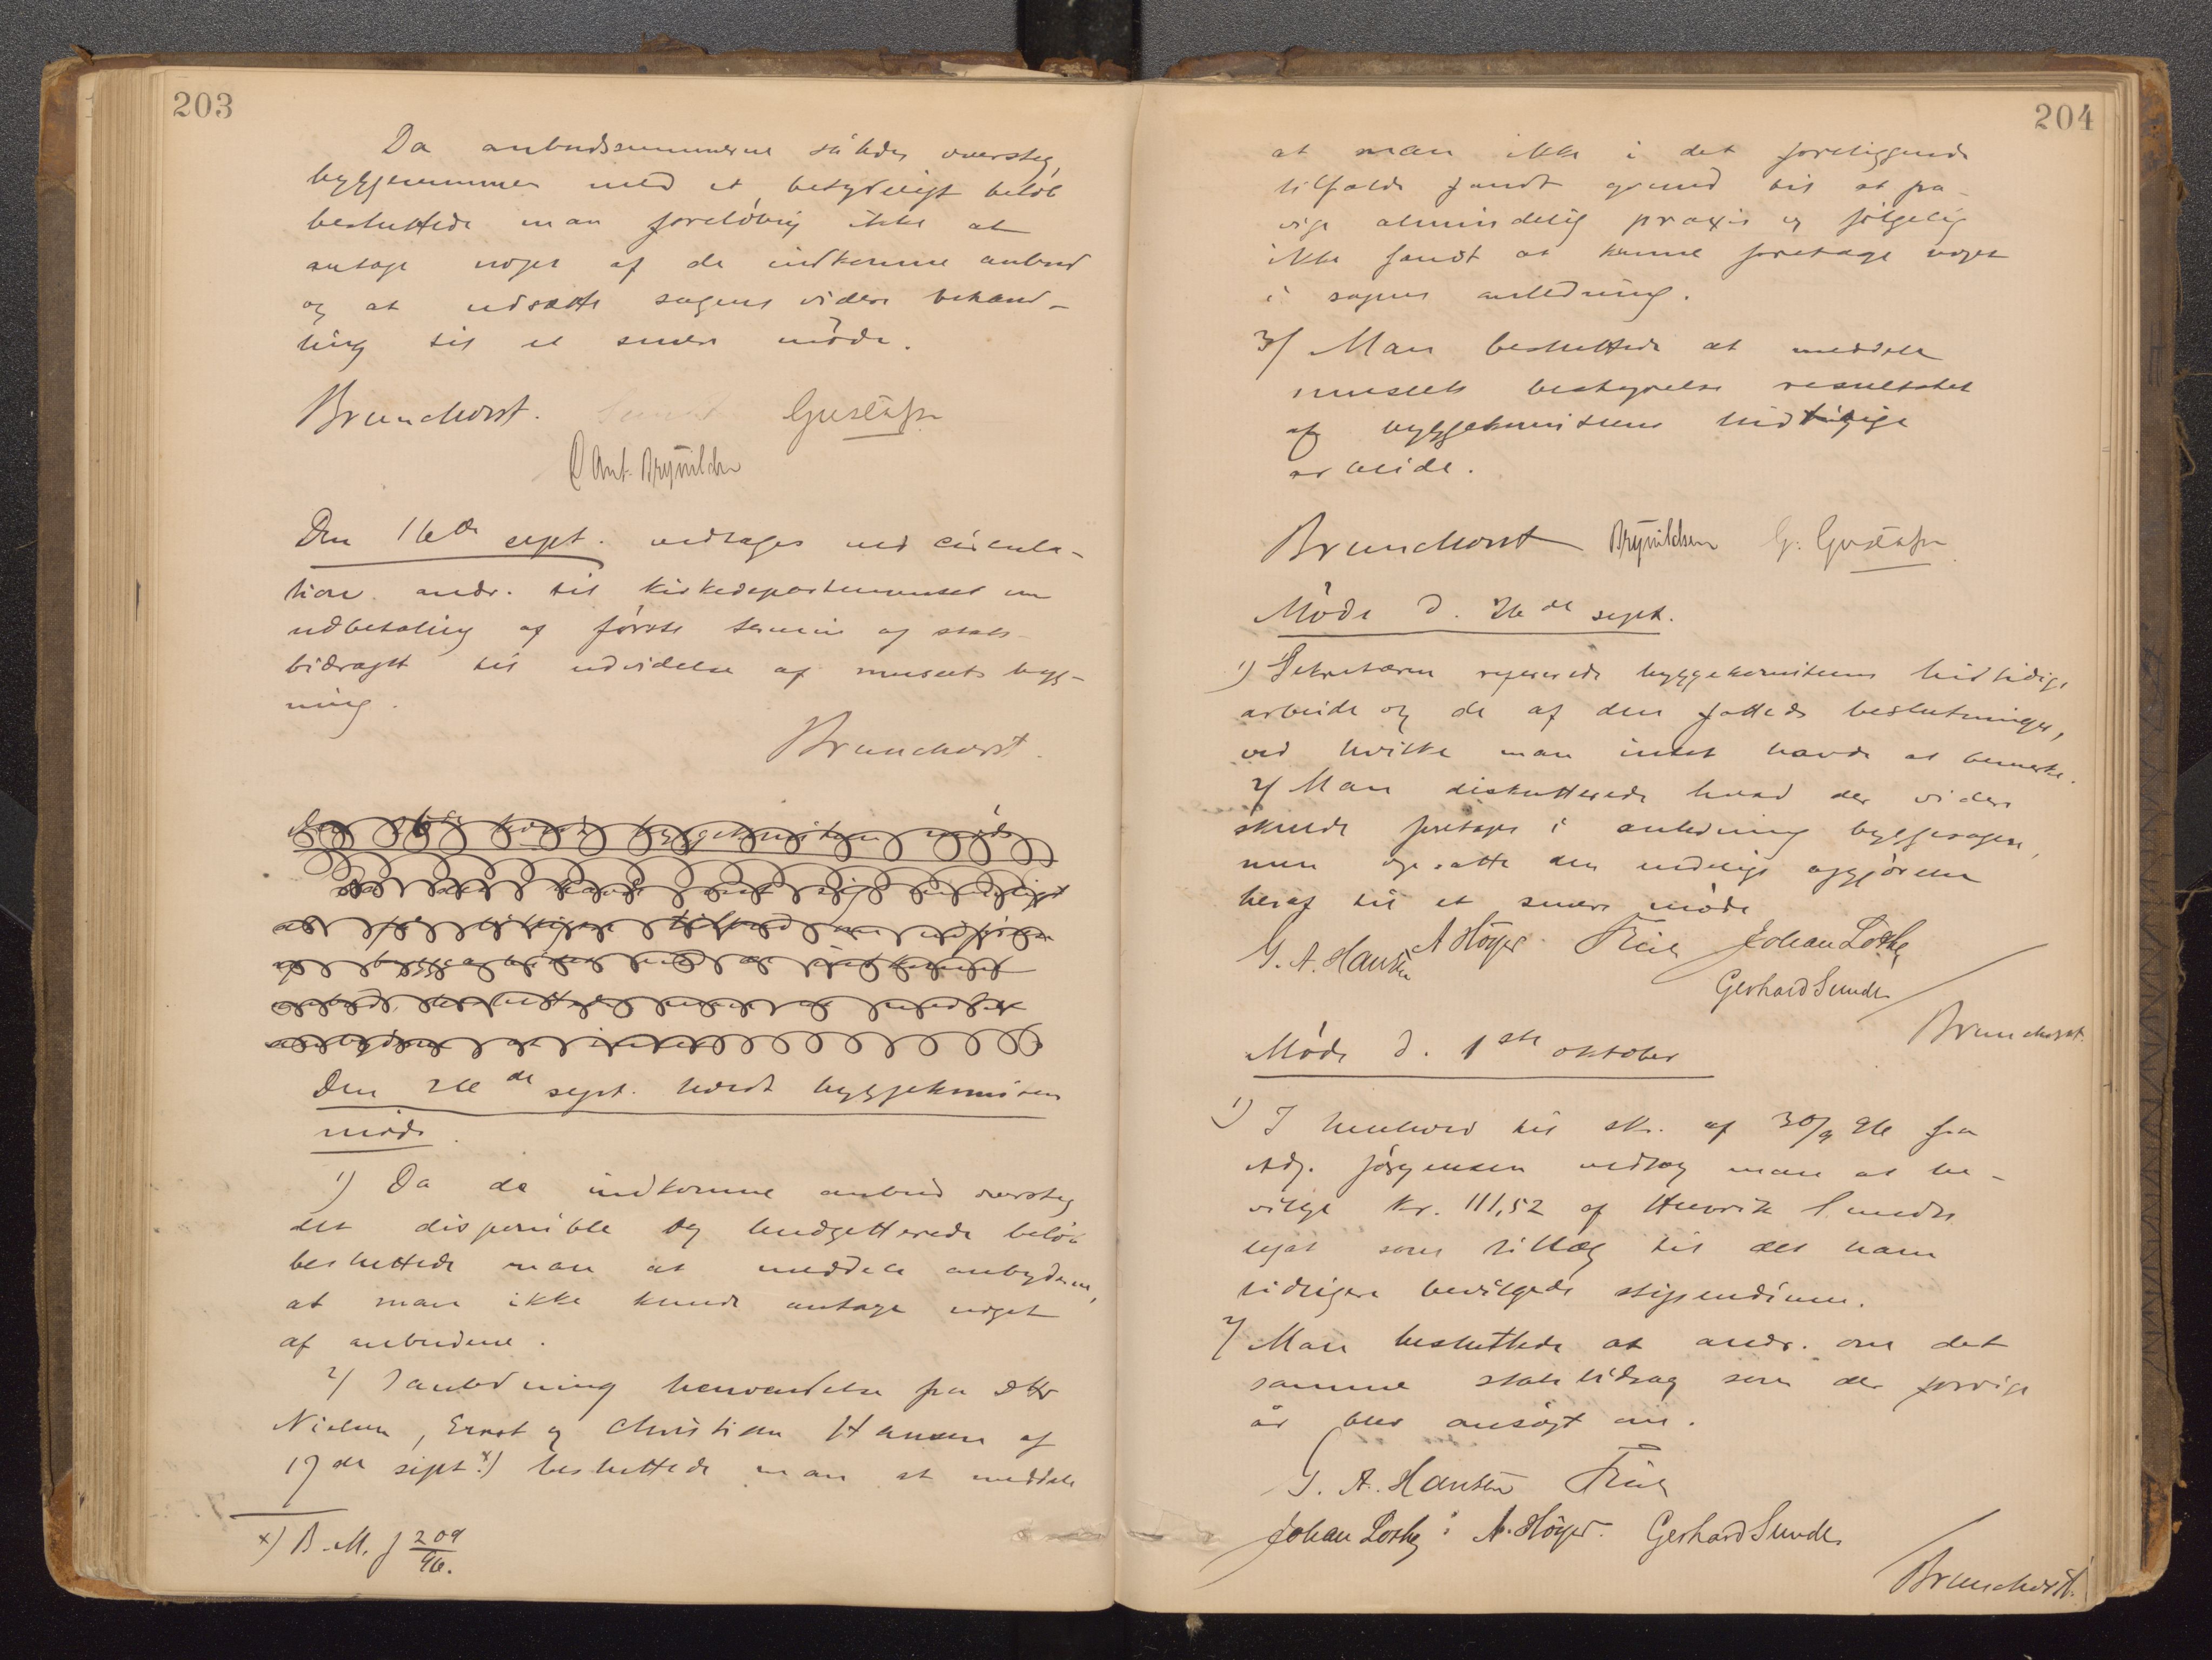 203
Da anbudssummerne således oversteg
byggesummen med et betydeligt beløb
besluttede man foreløbig ikke at
antage noget af de indkomne anbud
og at udsætte sagens videre behand-
ling til et senere møde.
Brunchorst. Gustafson
C Ant. Brynildsen
Den 16de sept. vedtages ved circula-
tion andr. til Kirkedepartementet om
udbetaling af første termin af stats-
bidraget til udvidelse af museets byg-
ning.
Brunchorst.
byggekomiteen møde
Den 26de sept. holdt byggekomiteen
møde.
1) Da de indkomne anbud oversteg
det disponible og budgetterede beløb
besluttede man at meddele anbyderne,
at man ikke kunde antage noget
af anbudene.
2) I anledning henvendelse fra dHr
Nielsen, Ernst og Christian Hansen af
17de sept.x) besluttede man at meddele
x) B.M. J 209/96.
204
at man ikke i det foreliggende
tilfælde fandt grund til at fra-
vige almindelig praxis og følgelig
ikke fandt at kunne foretage noget
i sagens anledning.
3) Man besluttede at meddele
museets bestyrelse resultatet
af byggekomiteens hidtidige
arbeide.
Brunchorst Brynildsen G. Gustafson
Møde d. 26de sept.
1) Sekretæren refererede byggekomiteens hidtidige
arbeide og de af den fattede beslutninger,
ved hvilke man intet havde at bemerke.
2) Man diskutterede hvad der videre
skulde foretages i anledning byggesagen,
men opsatte den endelige afgjørelse
heraf til et senere møde
G. A. Hansen A Høyer. Friele Johan Lothe
Gerhard Sundt
Brunchorst.
Møde d. 1ste oktober
1) I henhold til skr. af 30/9 96 fra
Adj. Jørgensen vedtog man at be-
vilge Kr. 111,52 af Henrik Sundts
legat som tillæg til det ham
tidligere bevilgede stipendium.
2) Man besluttede at andr. om det
samme statsbidrag som der forrige
år blev ansøgt om.
G. A. Hansen Friele
Johan Lothe A. Høyer. Gerhard Sundt
Brunchorst.